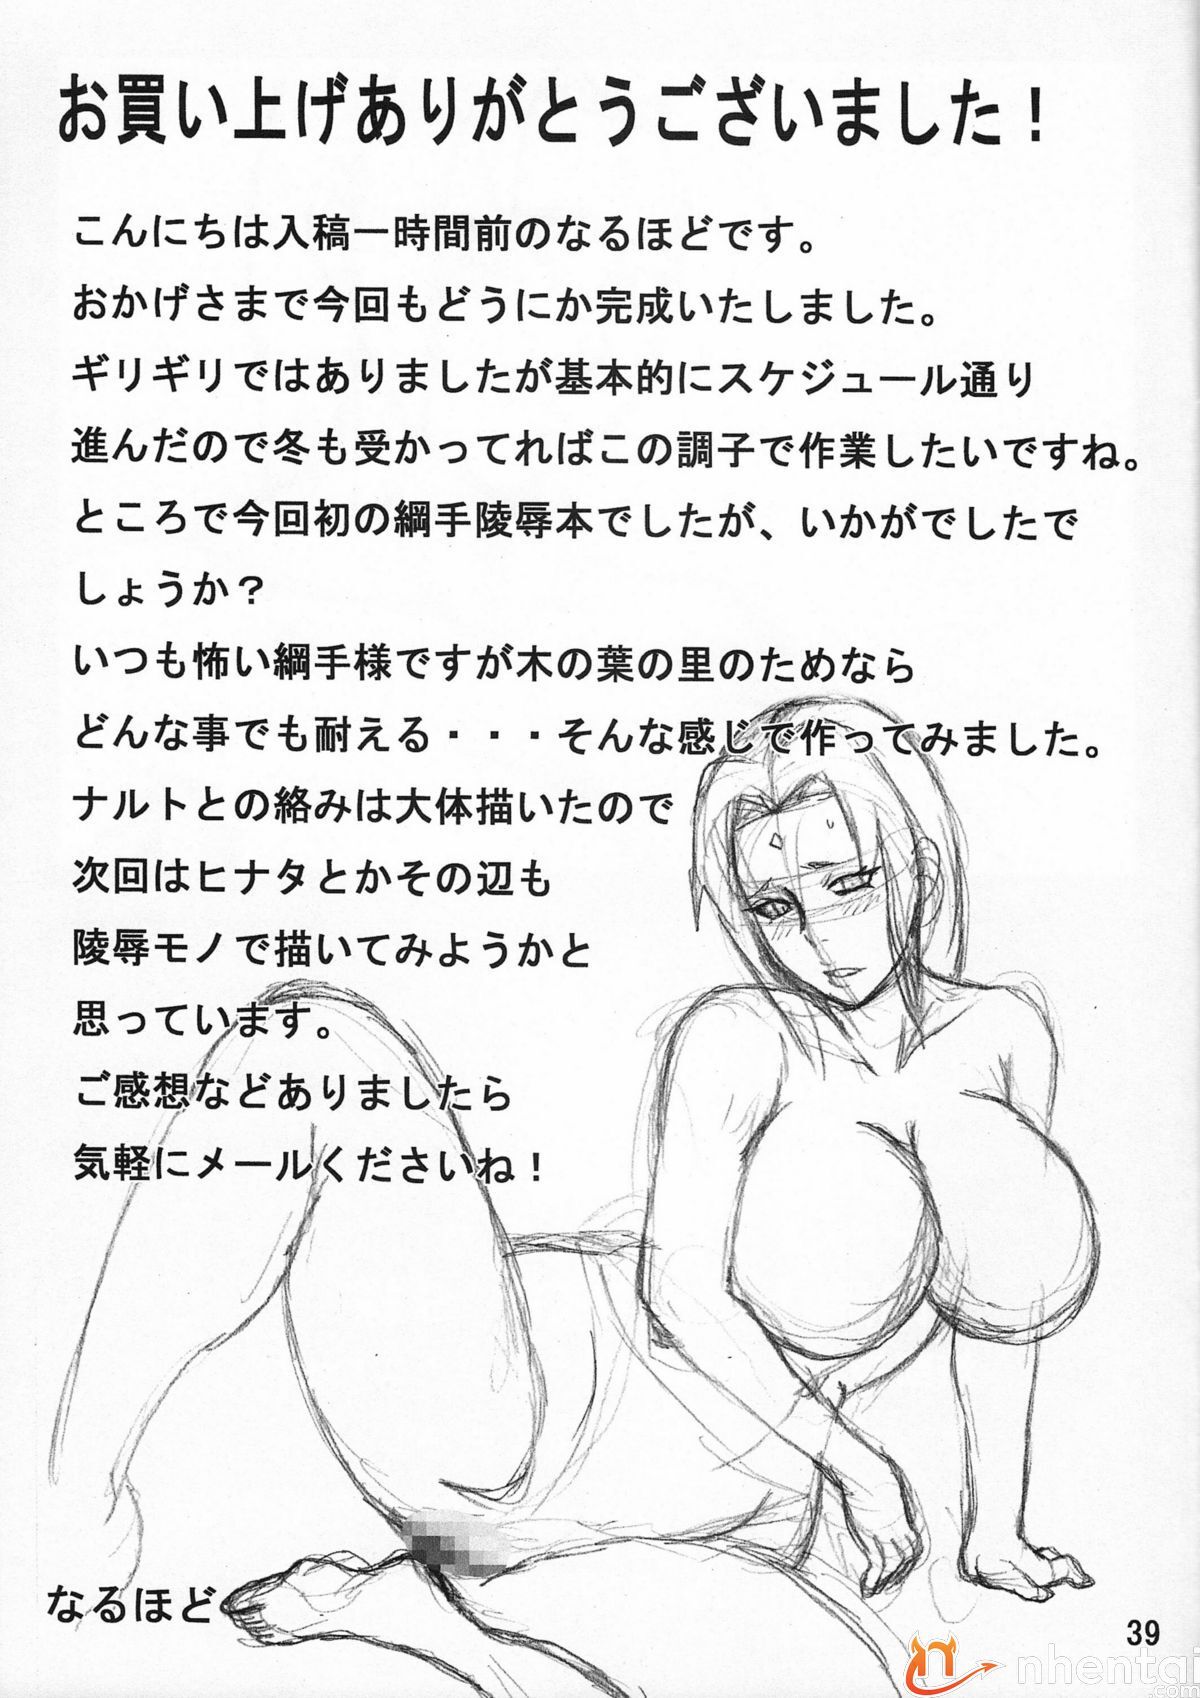 お買い上げありがとうございました！
こんにちは入稿一時間前のなるほどです。
おかげさまで今回もどうにか完成いたしました。
ギリギリではありましたが基本的にスケジュール通り
進んだので冬も受かってればこの調子で作業したいですね。
ところで今回初の綱手陵辱本でしたが、いかがでしたで
しょうか？
いつも怖い綱手様ですが木の葉の里のためなら
どんな事でも耐える・・・そんな感じで作ってみました。
ナルトとの絡みは大体描いたので
次回はヒナタとかその辺も
陵辱モノで描いてみようかと
思っています。
ご感想などありましたら
気軽にメールくださいね！
なるほど
39
nhentai
.com